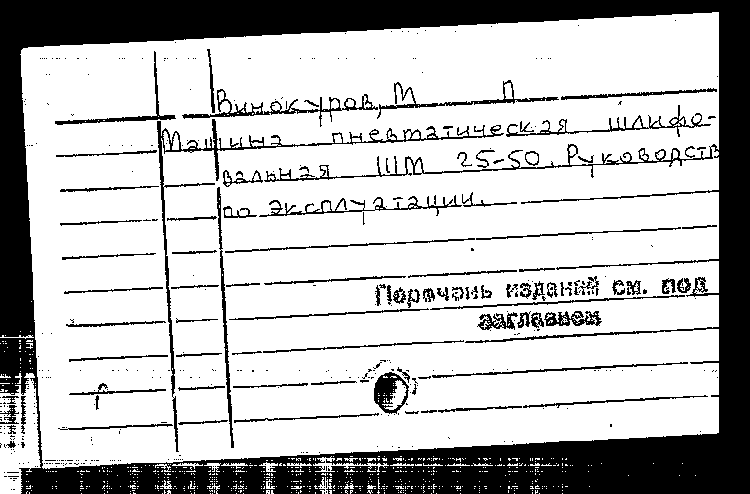 Винокуров, М П
Машина пневматическая шлифо-
вальная ШМ 25-50. Руководств
по эксплуатации.
Перечень изданий см. под
заглавием
г